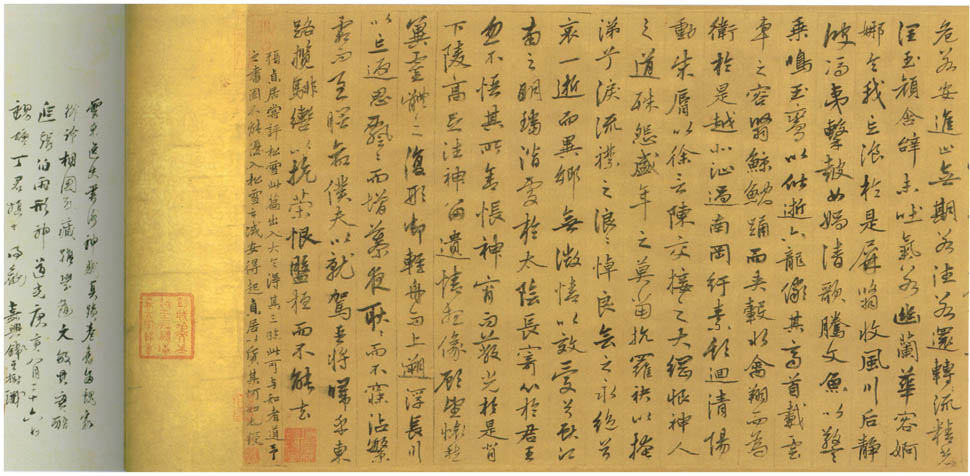 危若安進止無期若往若還轉流精光
潤玉顏含辭未吐氣若幽蘭華容婀
娜令我忘飡於是屏翳收風川后静
波馮夷擊鼓女媧清歌騰文魚以警
乘鳴玉鸞以偕逝六龍儼其齊首載雲
車之容裔鯨鯢踊而夾轂水禽翔而為
衛於是越北沚過南岡紆素領迴清陽
動朱脣以徐言陳交接之大綱恨神人
之道殊怨盛年之莫當抗羅袂以掩
涕兮淚流襟之浪浪悼良會之永絕兮
哀一逝而異鄉無微情以效愛兮獻江
南之明璫潛處於太陰長寄心於君王
忽不悟其所舍悵神宵而蔽光於是背
下陵高足往神留遺情想像顧望懷愁
冀靈體之復形御輕舟而上遡浮長川
以忘返思緜緜而增慕夜耿耿而不寐沾繁
霜而至曙命僕夫以就駕吾將歸乎東
路攬騑轡以抗策悵盤桓而不能去
張貞居嘗評松雪此篇出入大令得其三昧此可與知者道予
之書固不能入松雪之域安得起貞居以論其何如也
雲東逸史書洛神賦真蹟卷舊為
相國
形神道光庚寅八月二十六日
錢塘丁君嘉興錢